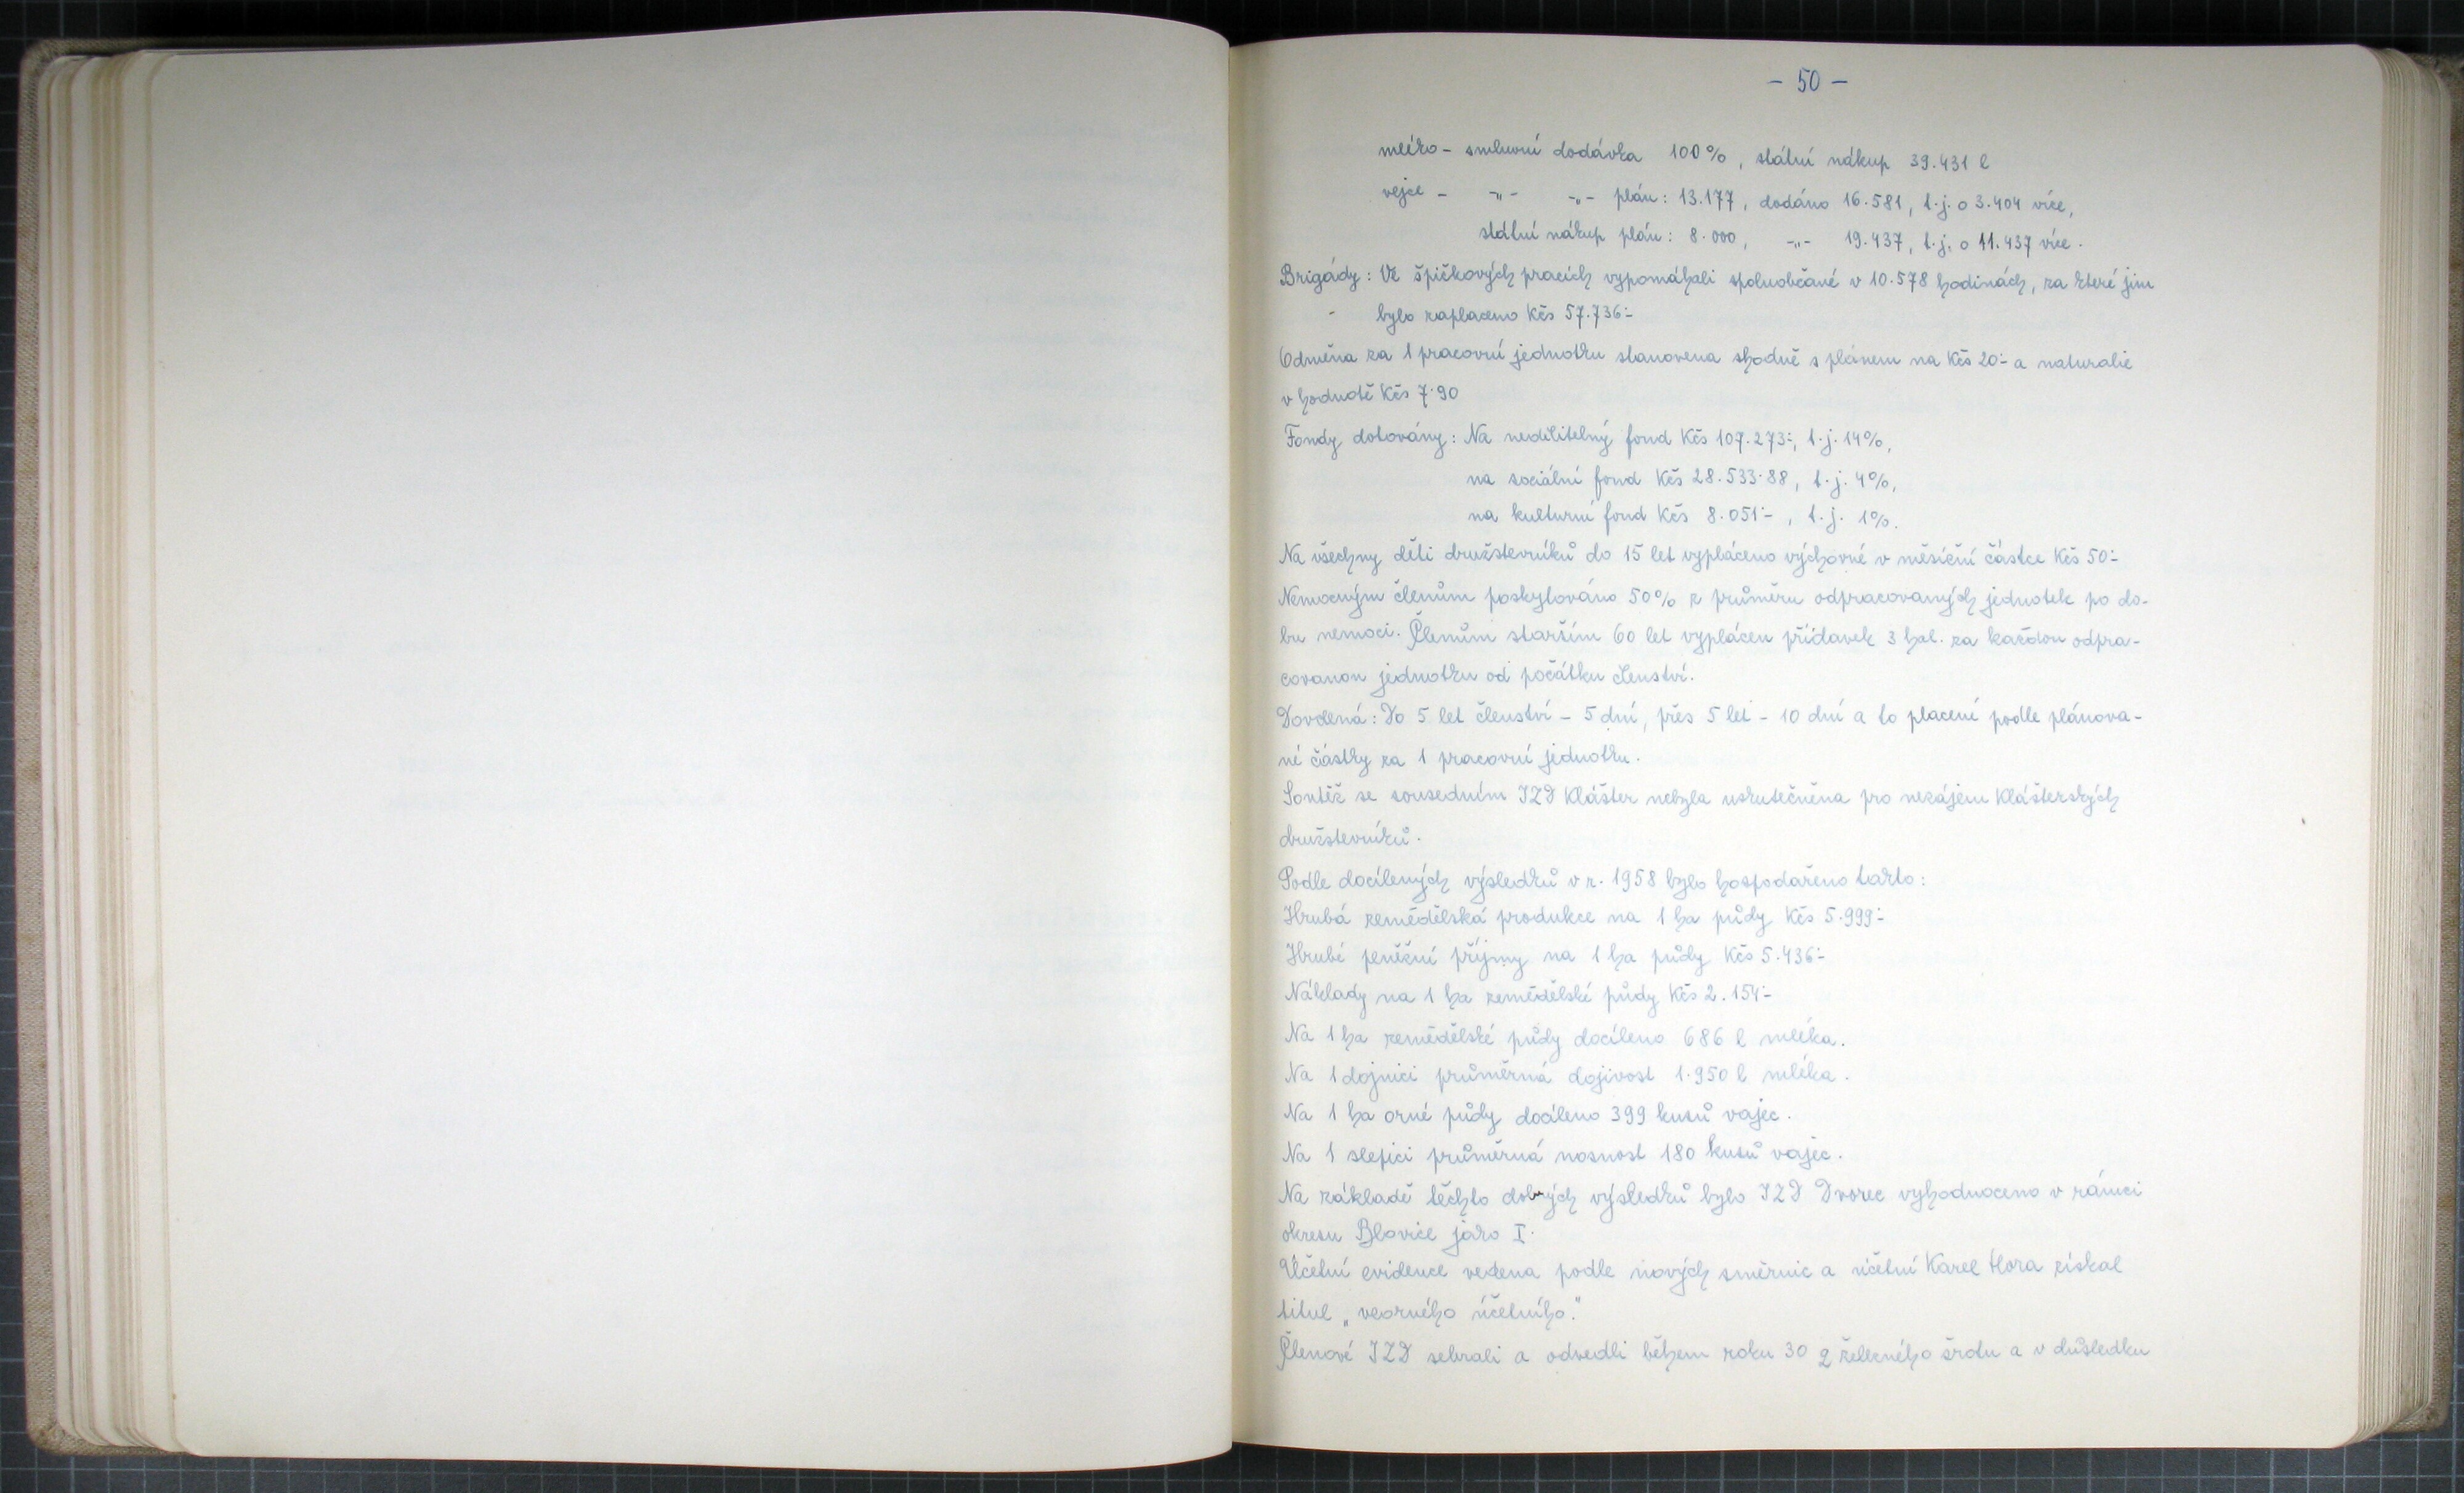 - 50 -
mléko - smluvní dodávka 100%, státní nákup 39.431 l
vejce - -„- -„- plán: 13.177, dodáno 16.581, t.j. o 3.404 více,
státní nákup plán: 8.000, -„- 19.437, t.j. o 11.437 více.
Brigády: Ve špičkových pracích vypomáhali spoluobčané v 10.578 hodinách, za které jim
bylo zaplaceno Kčs 57.736·-
Odměna za 1 pracovní jednotku stanovena shodně s plánem na Kčs 20·- a naturalie
v hodnotě Kčs 7·90
Fondy dotovány: Na nedělitelný fond Kčs 107.273·-, t.j. 14%,
na sociální fond Kčs 28.533·88, t.j. 4%,
na kulturní fond Kčs 8.051·-, t.j. 1%.
Na všechny děti družstevníků do 15 let vypláceno výchovné v měsíční částce Kčs 50·-
Nemocným členům poskytováno 50% z průměru odpracovaných jednotek po do-
bu nemoci. Členům starším 60 let vyplácen přídavek 3 hal. za každou odpra-
covanou jednotku od počátku členství.
Dovolená: Do 5 let členství - 5 dní, přes 5 let - 10 dní a to placení podle plánova-
né částky za 1 pracovní jednotku.
Soutěž se sousedním JZD Klášter nebyla uskutečněna pro nezájem Klášterských
družstevníků.
Podle docílených výsledků v r. 1958 bylo hospodařeno takto:
Hrubá zemědělská produkce na 1 ha půdy Kčs 5.999·-
Hrubé peněžní příjmy na 1 ha půdy Kčs 5.436·-
Náklady na 1 ha zemědělské půdy Kčs 2.154·-
Na 1 ha zemědělské půdy docíleno 686 l mléka.
Na 1 dojnici průměrná dojivost 1.950 l mléka.
Na 1 ha orné půdy docíleno 399 kusů vajec.
Na 1 slepici průměrná nosnost 180 kusů vajec.
Na základě těchto dobrých výsledků bylo JZD Dvorec vyhodnoceno v rámci
okresu Blovice jako I.
Účetní evidence vedena podle nových směrnic a účetní Karel Hora získal
titul „vzorného účetního."
Členové JZD sebrali a odvedli během roku 30 q železného šrotu a v důsledku